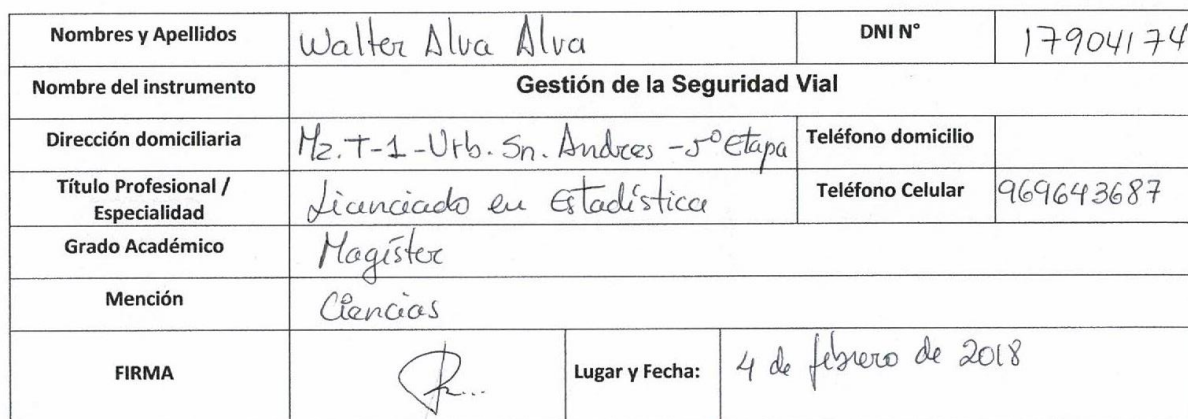 Nombres y Apellidos Walter Alva Alva DNI N° 17904174
Nombre del instrumento Gestión de la Seguridad Vial
Dirección domiciliaria Mz. T-1-Urb. Sn. Andres - 5° Etapa Teléfono domicilio
Título Profesional / Especialidad Licenciado en Estadística Teléfono Celular 969643687
Grado Académico Magíster
Mención Ciencias
FIRMA Lugar y Fecha: 4 de febrero de 2018